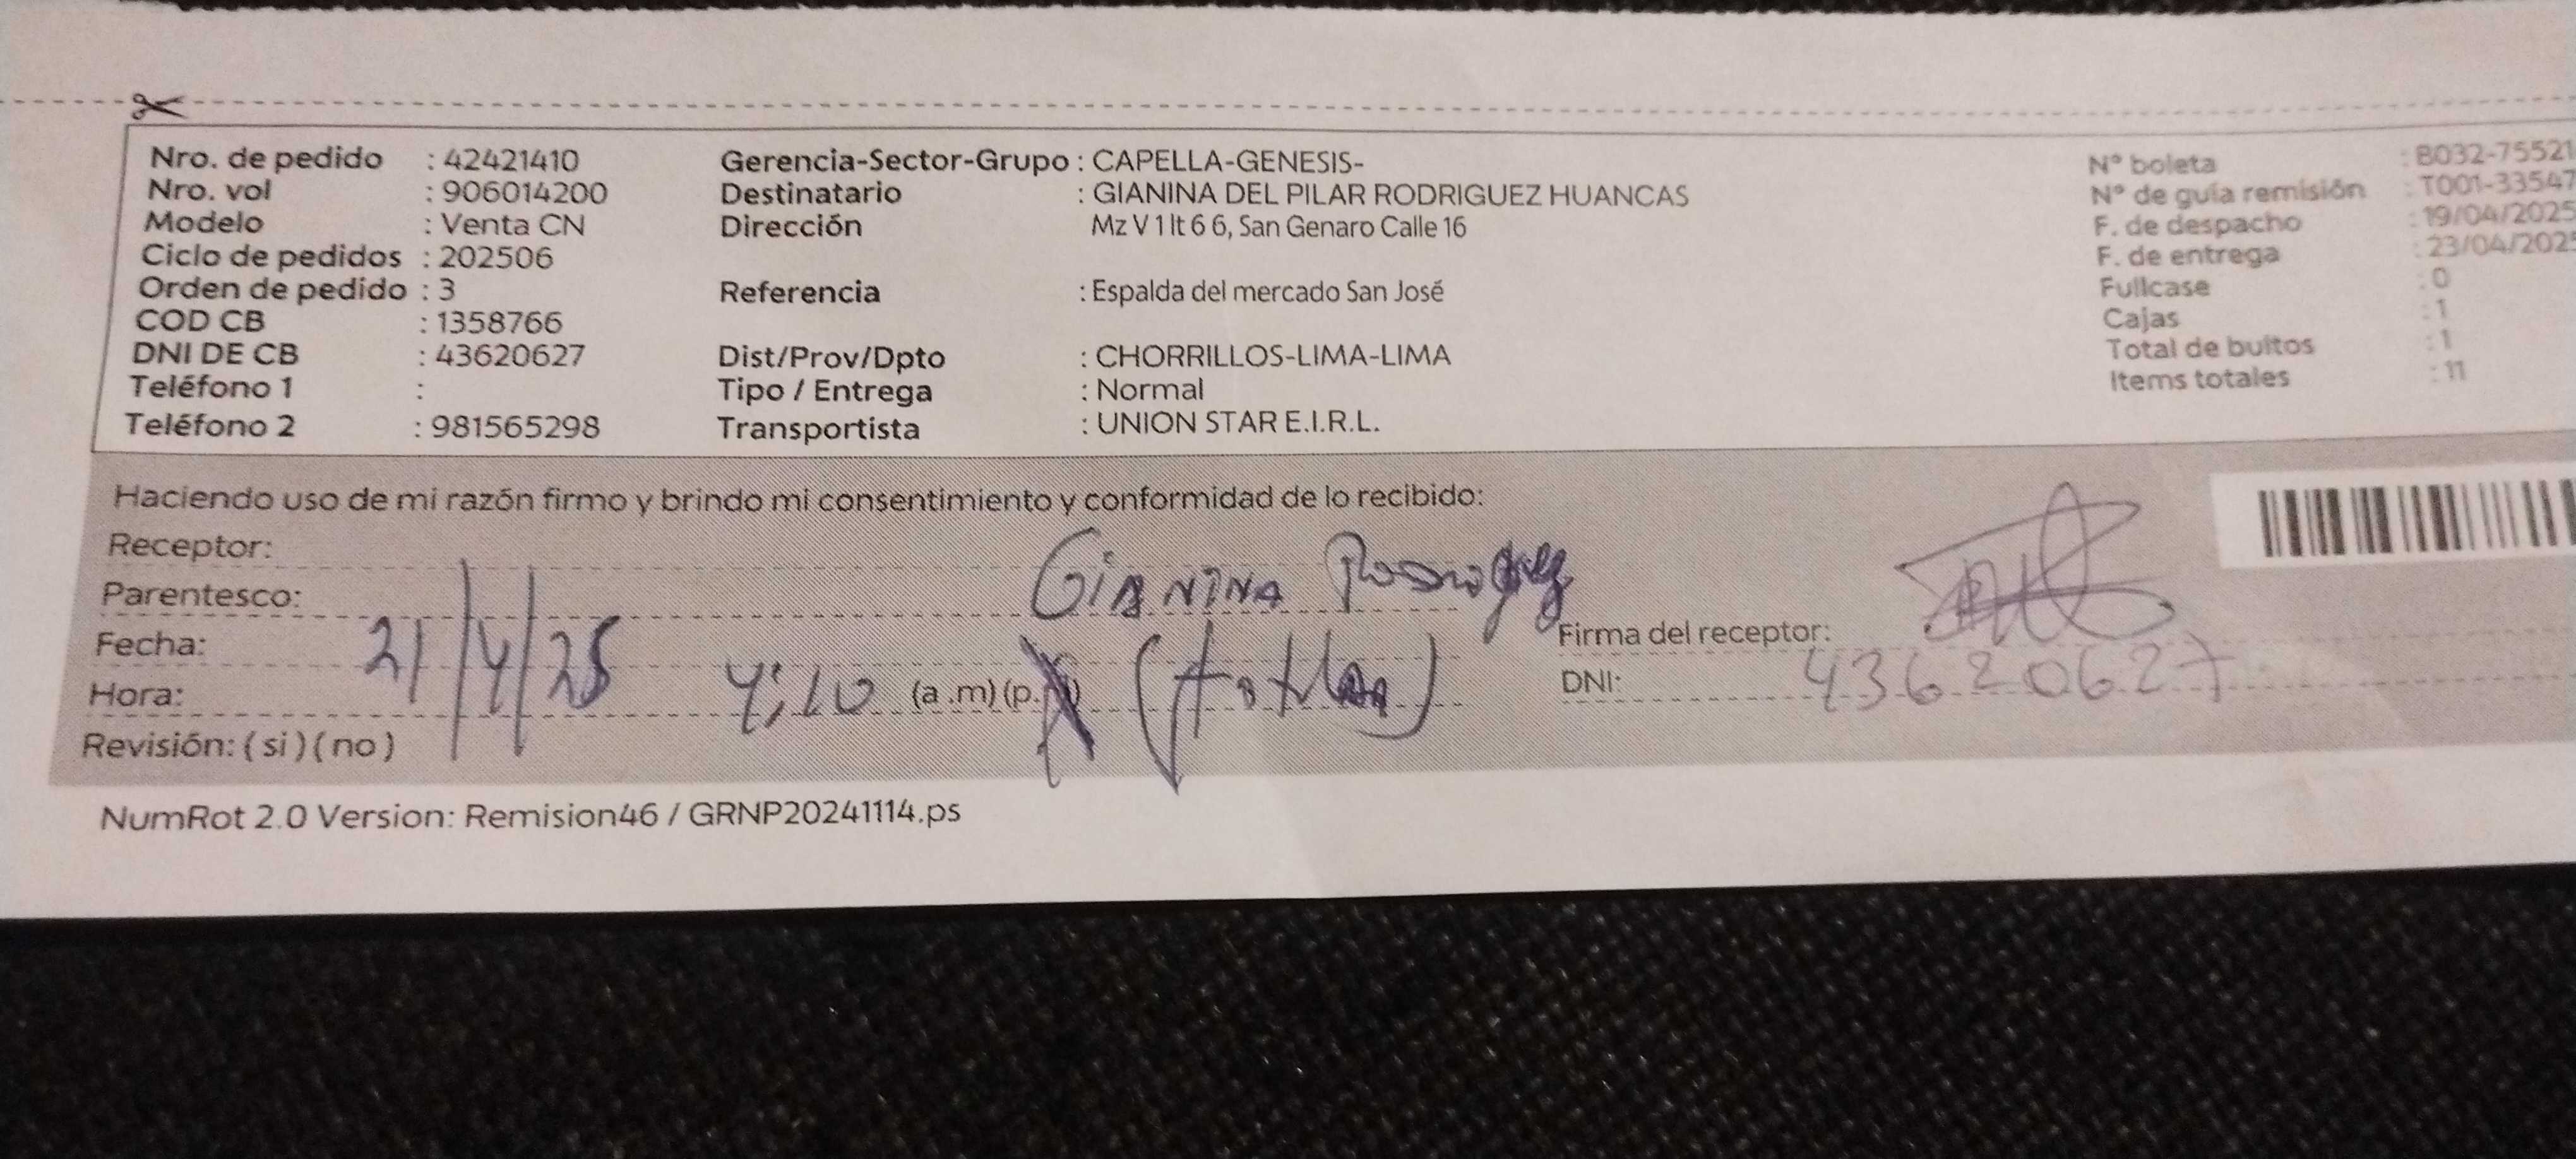 Nro. de pedido : 42421410
Nro. vol : 906014200
Modelo : Venta CN
Ciclo de pedidos : 202506
Orden de pedido : 3
COD CB : 1358766
DNI DE CB : 43620627
Teléfono 1 :
Teléfono 2 : 981565298
Gerencia-Sector-Grupo : CAPELLA-GENESIS-
Destinatario : GIANINA DEL PILAR RODRIGUEZ HUANCAS
Dirección Mz V 1 lt 6 6, San Genaro Calle 16
Referencia : Espalda del mercado San José
Dist/Prov/Dpto : CHORRILLOS-LIMA-LIMA
Tipo / Entrega : Normal
Transportista : UNION STAR E.I.R.L.
N° boleta : B032-75521
N° de guía remisión : T001-33547
F. de despacho : 19/04/2025
F. de entrega : 23/04/2025
Fullcase : 0
Cajas : 1
Total de bultos : 1
Items totales : 11
Haciendo uso de mi razón firmo y brindo mi consentimiento y conformidad de lo recibido:
Receptor:
Parentesco: Gianina Rodriguez
Fecha: 21/4/25
Hora: 4:10 (a.m) (p.
Revisión: ( si ) ( no )
Firma del receptor:
DNI: 43620627
NumRot 2.0 Version: Remision46 / GRNP20241114.ps